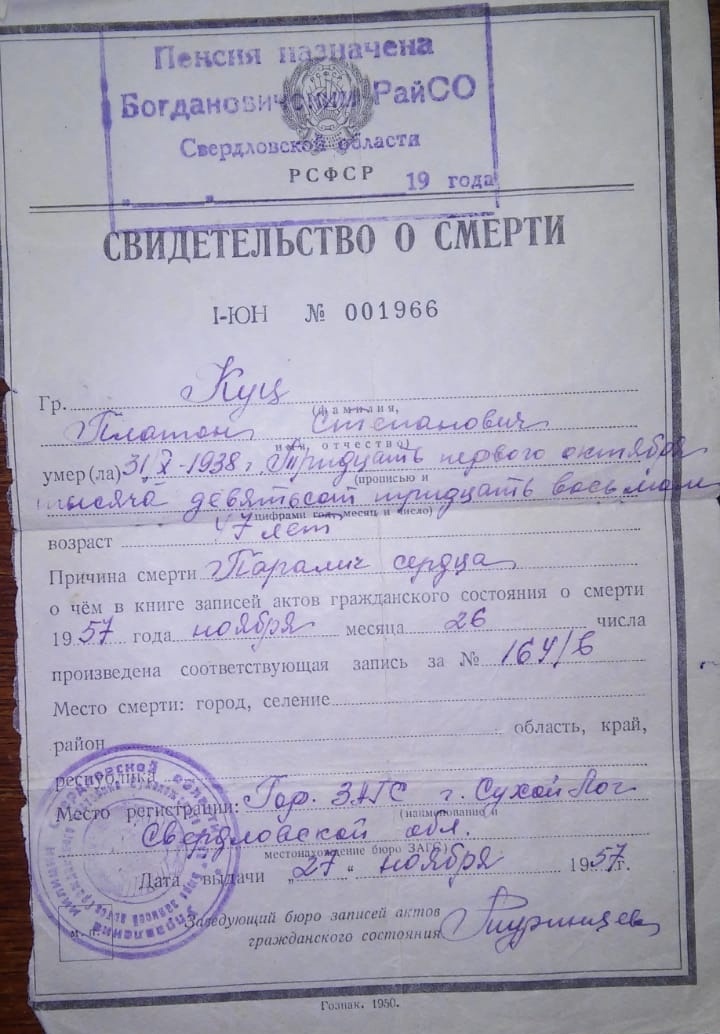 Пенсия назначена
Богдановичским РайСО
Свердловской области
РСФСР
" " 19 года
СВИДЕТЕЛЬСТВО О СМЕРТИ
I-ЮН № 001966
Гр. Куц
(фамилия,
Платон Степанович
имя, отчество)
умер(ла) 31/X-1938 г. Тридцать первого октября
(прописью и
тысяча девятьсот тридцать восьмом
цифрами год, месяц и число)
возраст 47 лет
Причина смерти Паралич сердца
о чём в книге записей актов гражданского состояния о смерти
1957 года ноября месяца 26 числа
произведена соответствующая запись за № 164/б
Место смерти: город, селение
район область, край,
республика
Место регистрации: Гор. ЗАГС г. Сухой Лог
(наименование и
Свердловской обл.
местонахождение бюро ЗАГС)
Дата выдачи „27" ноября 1957г.
М. П.
Заведующий бюро записей актов
гражданского состояния
Гознак. 1950.